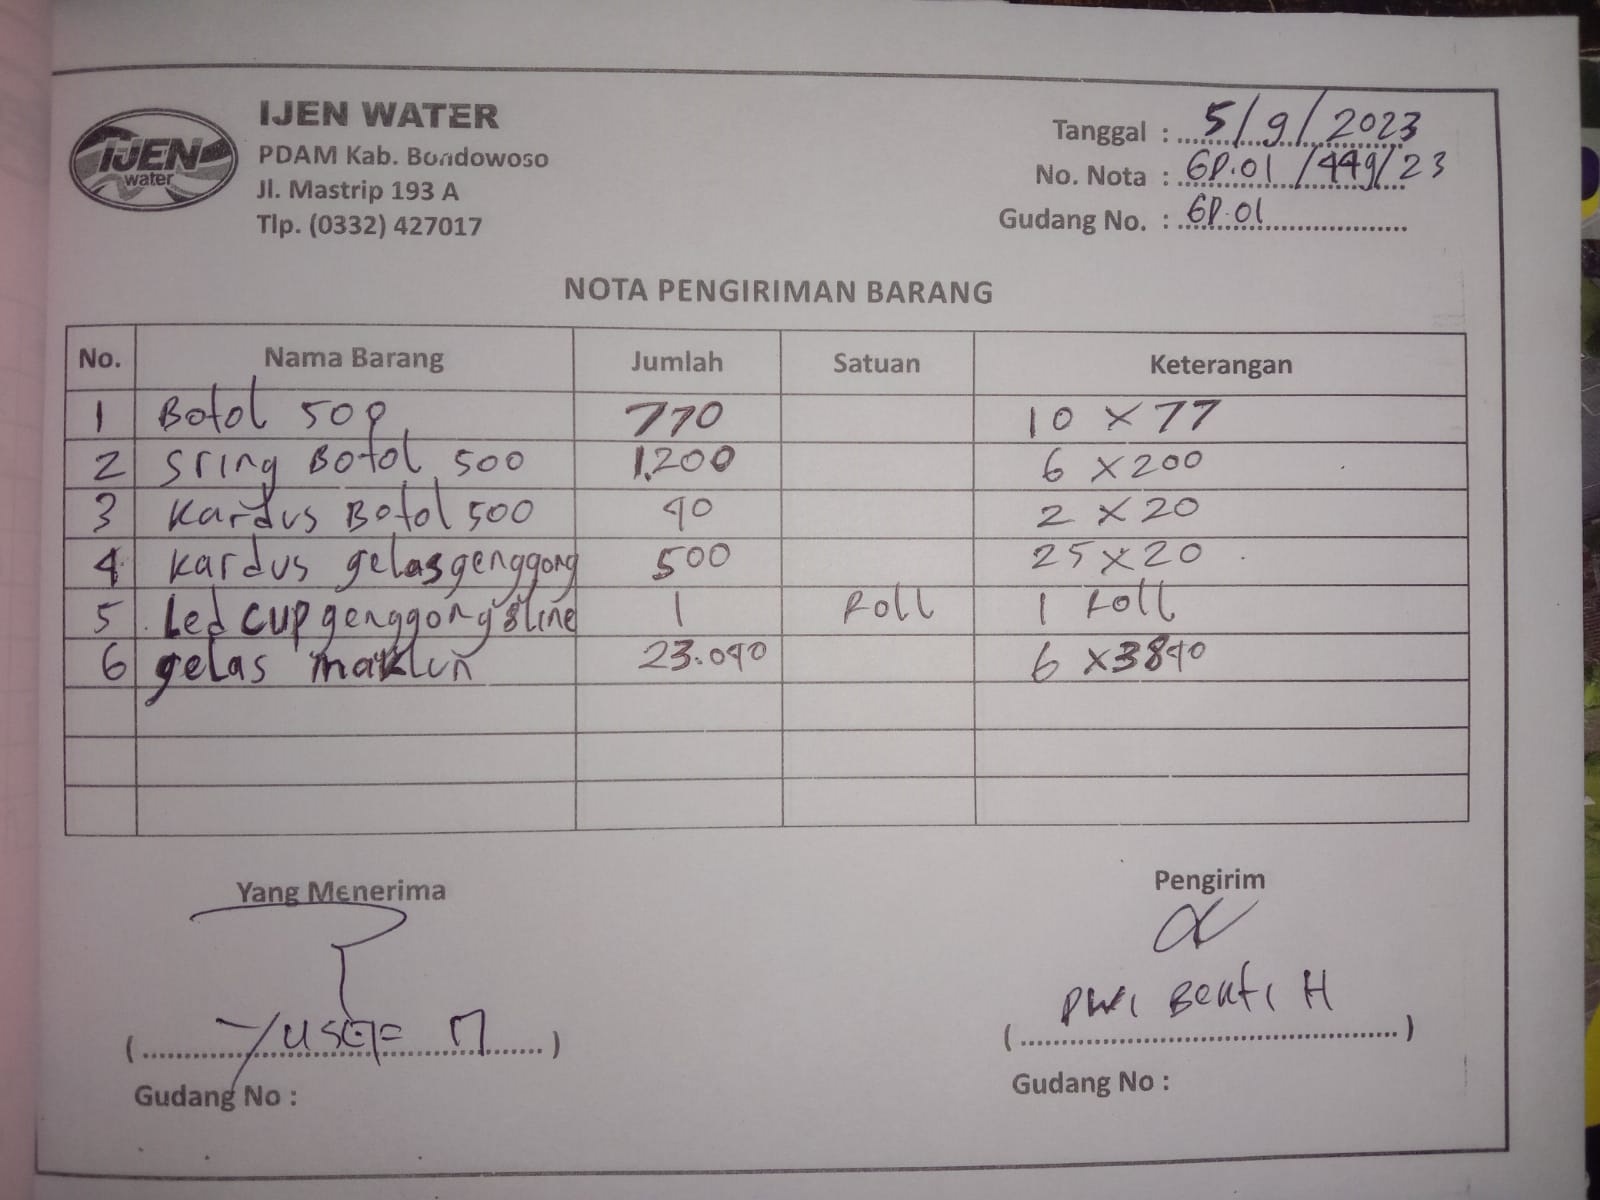 IJEN
water
IJEN WATER
PDAM Kab. Bondowoso
Jl. Mastrip 193 A
Tlp. (0332) 427017
Tanggal : 5/9/2023
No. Nota : GP.01/449/23
Gudang No. : GP.01
NOTA PENGIRIMAN BARANG
No. Nama Barang Jumlah Satuan Keterangan
1 Botol 500 770 10 x 77
2 Sring Botol 500 1.200 6 x 200
3 Kardus Botol 500 40 2 x 20
4 Kardus gelas genggong 500 25 x 20
5 Led cup genggong 8 line 1 Roll 1 Roll
6 gelas maklun 23.040 6 x 3840
Yang Menerima Pengirim
(Yusuf M) (Dwi H)
Gudang No : Gudang No :